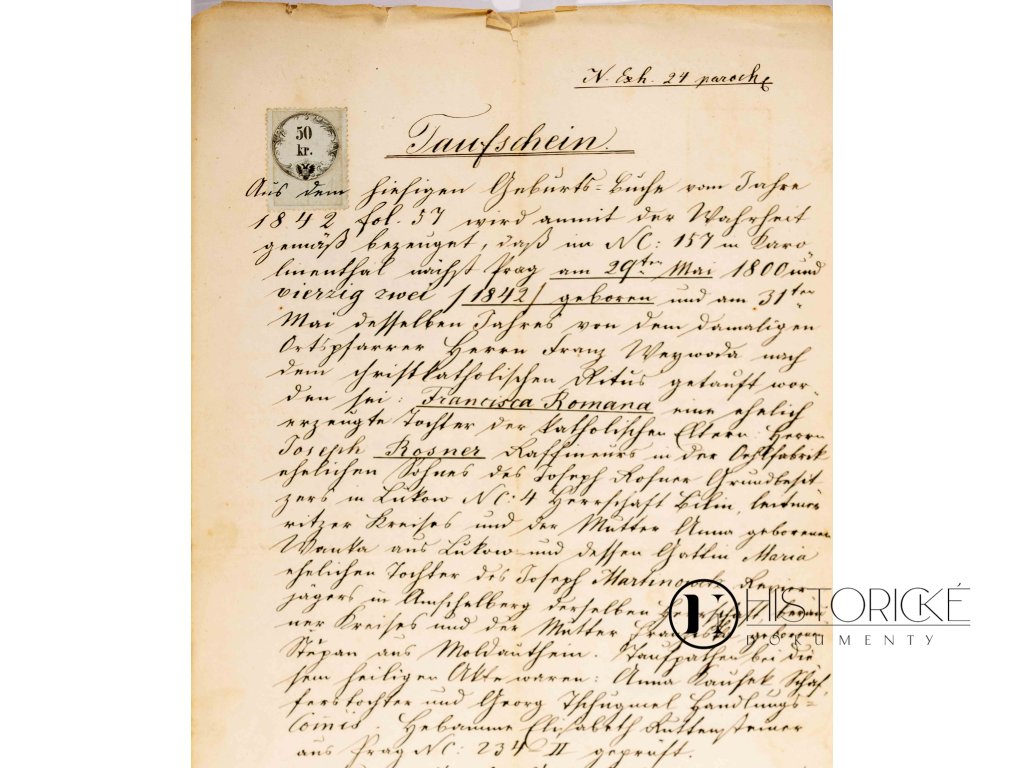 N. Exh. 24 paroch
50
kr.
Taufschein.
Aus dem hiesigen Geburts=Buche vom Jahre
1842 fol. 57 wird anmit der Wahrheit
gemäß bezeuget, daß im NC: 157 in Karo
linenthal nächst Prag am 29ten Mai 1800 und
vierzig zwei /1842/ geboren und am 31ten
Mai desselben Jahres von dem damaligen
Ortspfarrer Herrn Franz Weywoda nach
dem christkatholischen Ritus getauft wor-
den sei: Francisca Romana eine ehelich
erzeugte Tochter der katholischen Eltern: Herrn
Joseph Rosner Raffineurs in der
ehelichen Sohnes des Joseph Rosner Grundbesit
zers in Lukow NC: 4 Herrschaft Bilin, leitme
ritzer Kreises und der Mutter Anna geborenen
Wanka aus Lukow und dessen Gattin Maria
ehelichen Tochter des Joseph Revier
jägers in Amschelberg derselben Herrschaft
ner Kreises und der Mutter geborenen
Stěpan aus Moldauthein. Taufpathen bei die
sem heiligen Akte waren: Anna Kautsek Schäf-
ferstochter und Georg Tschugmel Handlungs=
Comis. Hebamme Elisabeth Ruttensteiner
aus Prag NC: 234 II geprüft.
HISTORICKÉ
DOKUMENTY